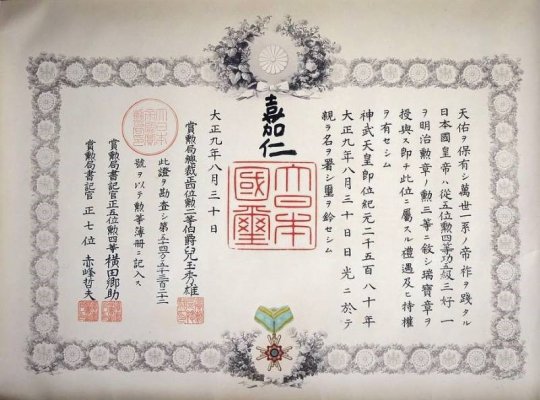 天佑ヲ保有シ萬世一系ノ帝祚ヲ踐タル
日本國皇帝ハ從五位勲四等功五級三好一
ヲ明治勲章ノ勲三等ニ敍シ瑞寶章ヲ
授與ス即チ此位ニ屬スル禮遇及ヒ特權
ヲ有セシム
神武天皇即位紀元二千五百八十年
大正九年八月三十日日光ニ於テ
親ラ名ヲ署シ璽ヲ鈐セシム
嘉仁
大日本國璽
大正九年八月三十日
賞勲局總裁正四位勲二等伯爵兒玉秀雄
此證ヲ勘査シ第五十四万五千三百二十二
號ヲ以テ勲等簿册ニ記入ス
賞勲局書記官正五位勲四等横田郷助
賞勲局書記官正七位赤峰哲夫